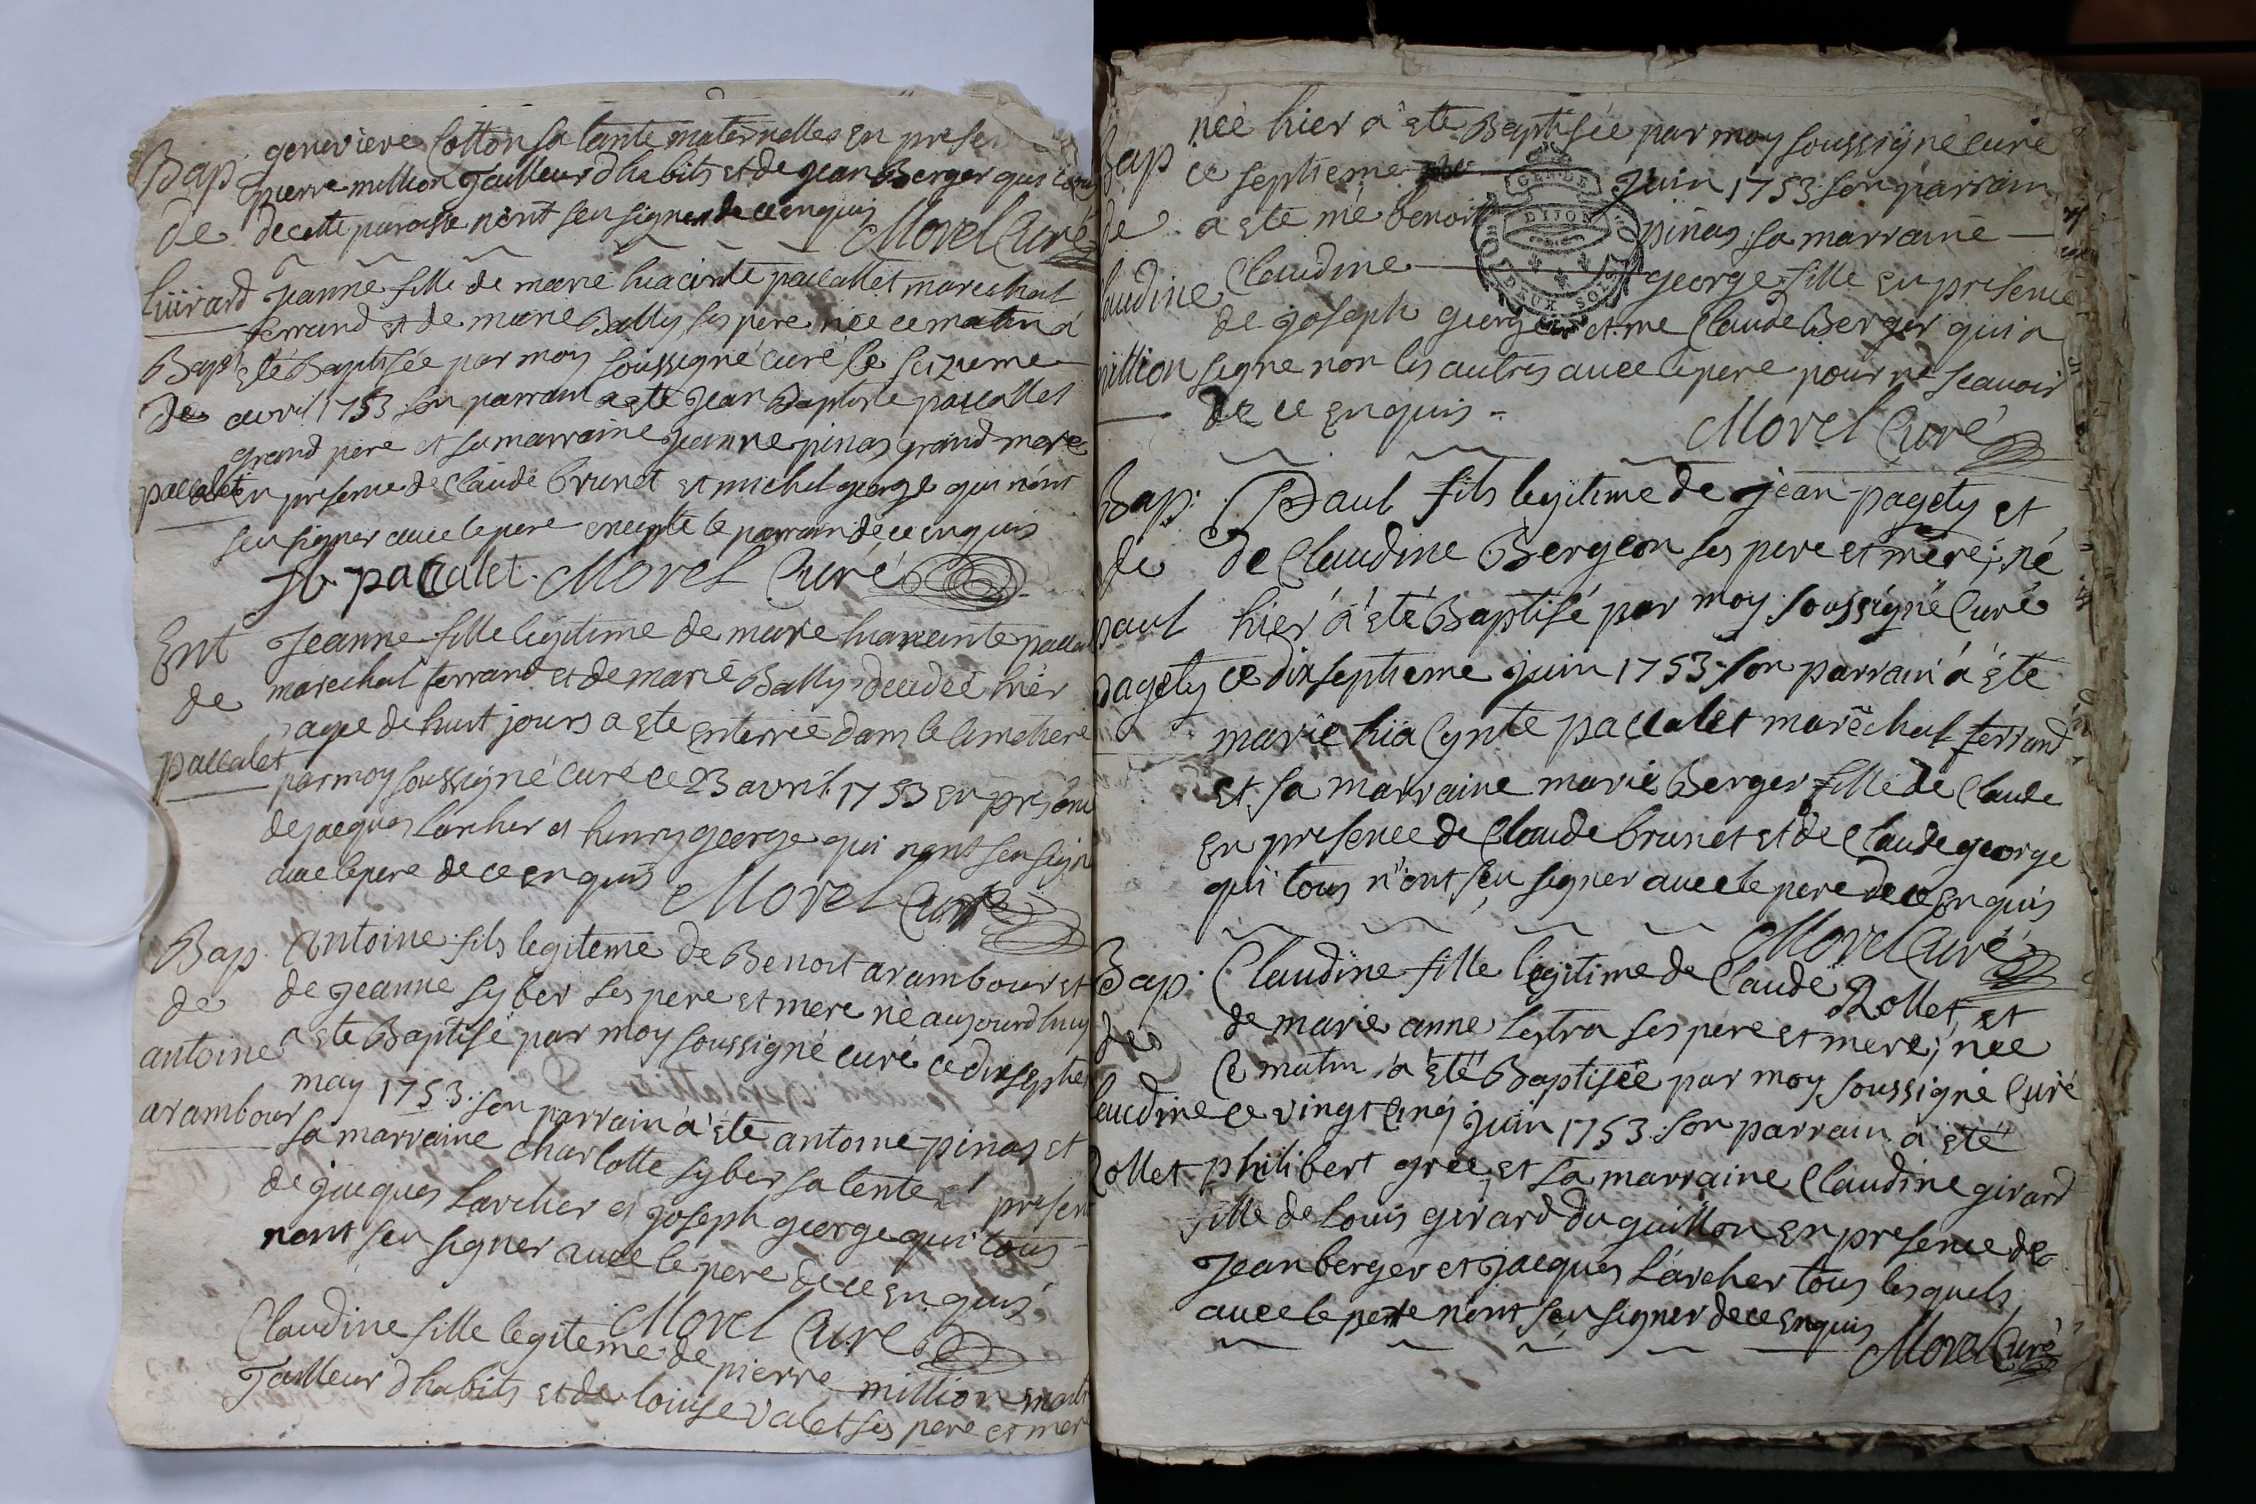 genevieve Cotton sa tante maternelles En prese
Bap. pierre million Tailleur dhabits et de jean Berger qui tous
de decette paroisse n'ont seu signer de ce enquis Morel Curé
Guirard Jeanne fille de marie hiacinte paccallet marechal
ferrand et de marie Bally ses pere née ce matin à
Bap. été Baptisée par moy soussigné curé le seizieme
de avril 1753 son parrain a eté Jean Baptiste paccallet
grand pere et sa marraine jeanne pinas grand mere
paccalet En presence de Claude brunet et michel george qui n'ont
seu signer avec le pere excepté le parrain de ce enquis
Jb. paccalet. Morel Curé
Ent Jeanne fille legitime de marie hiaxcinte paccalet
de marechal ferrand et de marie Bally, decedeé hier
agee de huit jours a ete enterrée dans le cimetiere
paccalet par moy soussigné curé ce 23 avril 1753 en presence
de jacques Larcher et henry george qui nont seu signer
avec le pere de ce enquis Morel Curé
Bap. Antoine fils legiteme de Benoit arambour et
de de jeanne syber ses pere et mere né aujourdhuy
antoine a ete Baptisé par moy soussigné curé ce dix septie
may 1753. son parrain a ete antoine pinas et
arambour sa marraine Charlotte syber sa tente et presen
de jacques Larcher et joseph george qui tous
nont seu signer avec le pere de ce enquis
Morel Curé
Claudine fille legiteme de pierre million maitre
Tailleur dhabits et de louise valet ses pere et mere
Bap neé hier a ete Baptisée par moy soussigné curé
ce septieme juin 1753 son parrain
de a ete me benoit pinas, sa marraine
GEN. DE
DIJON
DEUX SOLS
Claudine Claudine george fille en presence
de joseph george et me Claude Berger qui a
million signe non les autres avec le pere pour ne scavoir
de ce enquis
Morel Curé
Bap. Paul fils legitime de jean pagety et
de de Claudine Bergeon ses pere et mere; né
paul hier a eté Baptisé par moy soussigné Curé
pagety ce dix septieme juin 1753 son parrain a eté
marie hiacynte paccalet maréchal ferrand
et sa marraine marie Berger fille de Claude
en presence de Claude brunet et de Claude george
qui tous n'ont seu signer avec le pere de ce enquis
Morel Curé
Bap. Claudine fille legitime de Claude Rollet et
de de marie anne Lestra ses pere et mere; née
Ce matin a eté Baptisée par moy soussigné Curé
Claudine ce vingt cinq juin 1753. son parrain a eté
Rollet philibert gree, et sa marraine Claudine girard
fille de Louis girard du guillon en presence de
Jean berger et jacques Larcher tous lesquels
avec le pere n'ont seu signer de ce enquis
Morel Curé